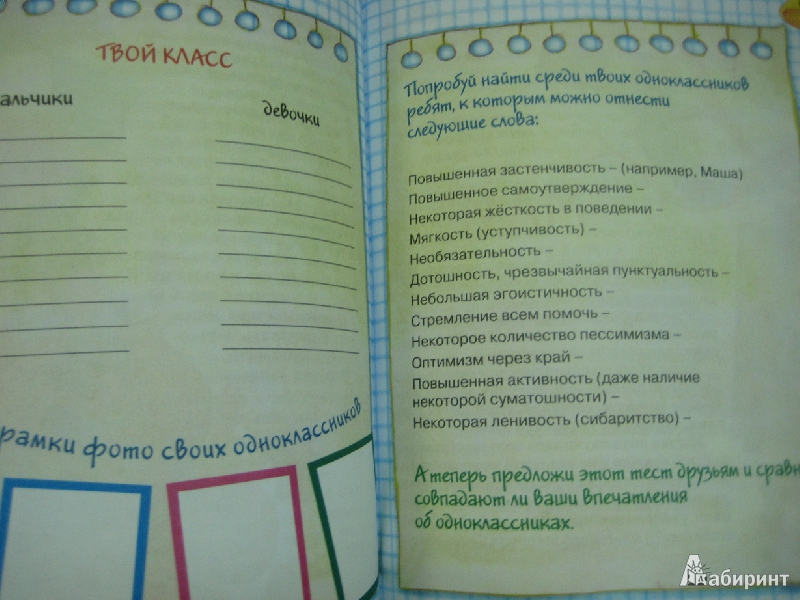 ТВОЙ КЛАСС
альчики
девочки
рамки фото своих одноклассников
Попробуй найти среди твоих одноклассников
ребят, к которым можно отнести
следующие слова:
Повышенная застенчивость – (например, Маша)
Повышенное самоутверждение –
Некоторая жёсткость в поведении –
Мягкость (уступчивость) –
Необязательность –
Дотошность, чрезвычайная пунктуальность –
Небольшая эгоистичность –
Стремление всем помочь –
Некоторое количество пессимизма –
Оптимизм через край –
Повышенная активность (даже наличие
некоторой суматошности) –
Некоторая ленивость (сибаритство) –
А теперь предложи этот тест друзьям и сравн
совпадают ли ваши впечатления
об одноклассниках.
Лабиринт